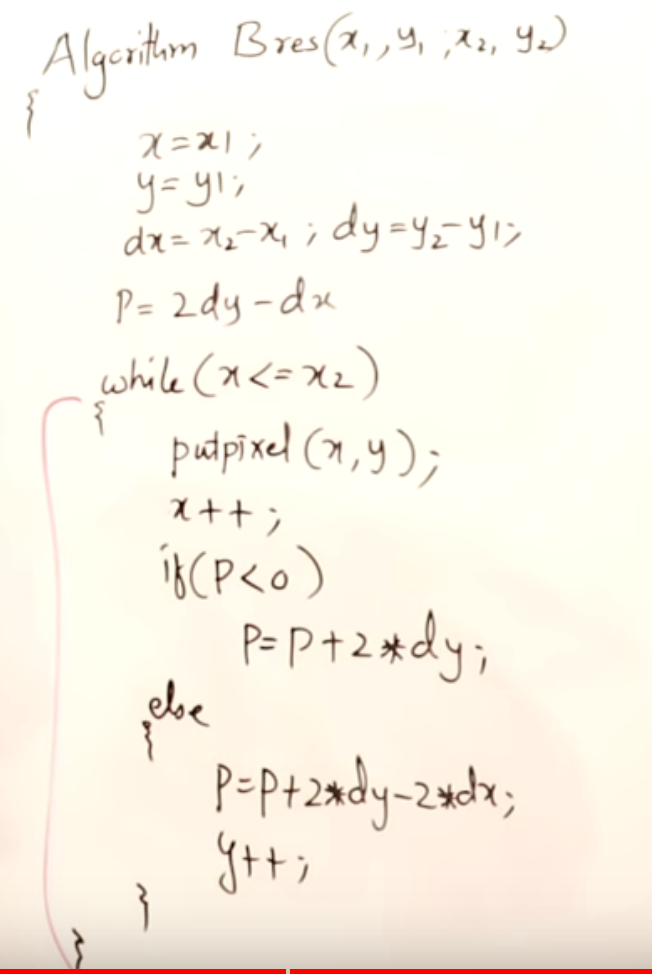 Algorithm Bres(x₁, y₁, x₂, y₂)
{
x=x1;
y=y1;
dx=x₂-x₁; dy=y₂-y1;
P=2dy-dx
while(x<=x2)
{
putpixel(x,y);
x++;
if(P<0)
P=P+2*dy;
else
{
P=P+2*dy-2*dx;
y++;
}
}